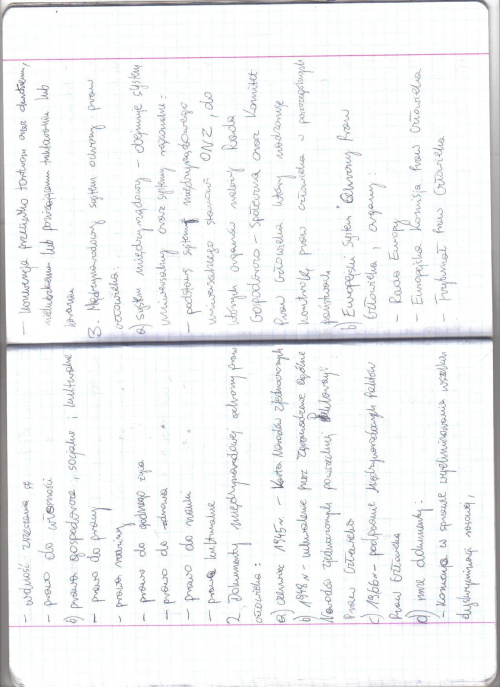 - wolność zrzeszania się
- prawo do własności
b) prawa gospodarcze, socjalne i kulturalne
- prawo do pracy
- prawa rodziny
- prawo do godnego życia
- prawo do zdrowia
- prawo do nauki
- prawa kulturalne
2. Dokumenty międzynarodowej ochrony praw
człowieka:
a) czerwiec 1945r. - Karta Narodów Zjednoczonych
b) 1948r. - uchwalenie przez Zgromadzenie Ogólne
Narodów Zjednoczonych Powszechnej Deklaracji
Praw Człowieka
c) 1966r. - podpisanie Międzynarodowych Paktów
Praw Człowieka
d) inne dokumenty:
- Konwencja w sprawie wyeliminowania wszelkich
dyskryminacji rasowej,
- konwencja przeciwko torturom oraz
nieludzkiemu lub poniżającemu traktowaniu lub
karaniu
3. Międzynarodowy system ochrony praw
człowieka.
a) system międzynarodowy - obejmuje system
uniwersalny oraz systemy regionalne:
- podstawę systemu międzynarodowego
uniwersalnego stanowi ONZ, do
których organów należy Rada
Gospodarczo - Społeczna oraz Komitet
Praw Człowieka który nadzoruje
kontrolę praw człowieka w poszczególnych
państwach
b) Europejski System Ochrony Praw
Człowieka i organy:
- Rada Europy
- Europejska Komisja Praw Człowieka
- Trybunał Praw Człowieka